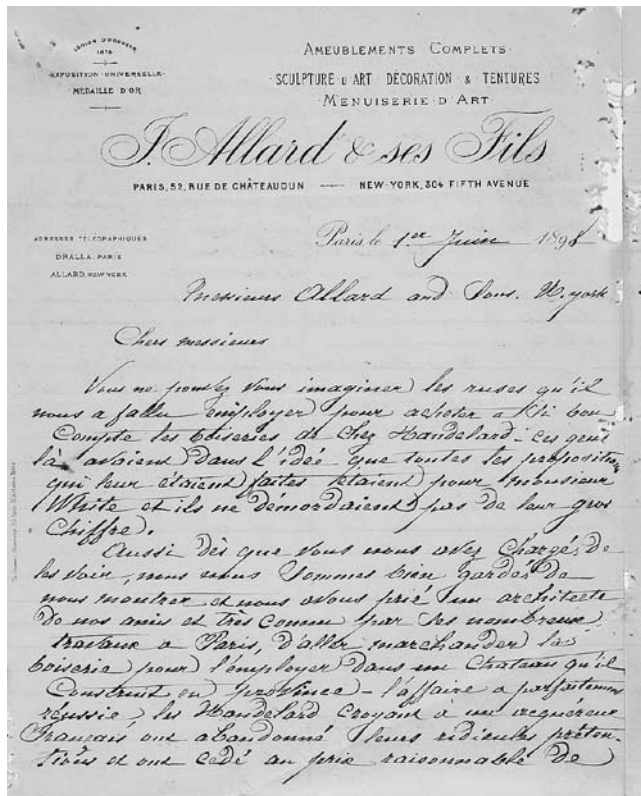 LÉGION D'HONNEUR
1878
EXPOSITION UNIVERSELLE
MÉDAILLE D'OR
AMEUBLEMENTS COMPLETS
SCULPTURE D'ART DÉCORATION & TENTURES
MENUISERIE D'ART
J. Allard & ses Fils
PARIS, 52, RUE DE CHÂTEAUDUN — NEW-YORK, 304 FIFTH AVENUE
ADRESSES TÉLÉGRAPHIQUES
DRALLA, PARIS
ALLARD, NEW YORK
Paris le 1er Juin 1898
Messieurs Allard and Sons. N. york
Chers messieurs
Vous ne pouvez vous imaginer les ruses qu'il
nous a fallu employer pour acheter a si bon
Compte les boiseries de chez Handelard - ces gens
là avaient dans l'idée que toutes les propositions
qui leur étaient faites étaient pour monsieur
White et ils ne démordaient pas de leur gros
chiffre.
Aussi dès que vous nous avez chargés de
les voir, nous nous sommes bien gardés de
nous montrer et nous avons prié un architecte
de nos amis et très connu par ses nombreux
travaux a Paris, d'aller marchander la
boiserie pour l'employer dans un chateau qu'il
Construit en province - l'affaire a parfaitement
réussie, les Handelard croyant à un acquéreur
Français ont abandonné leurs ridicules préten-
tions et ont cédé au prix raisonnable de